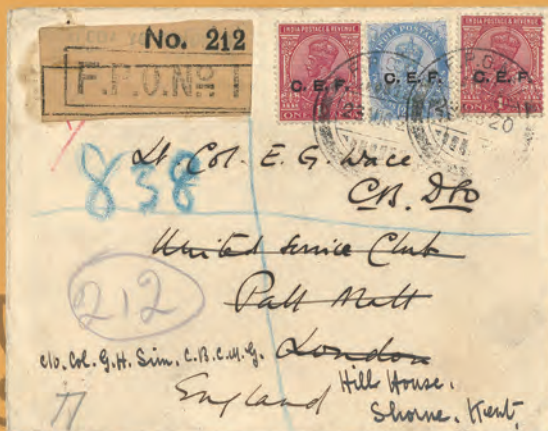 No. 212
F.P.O. No 1
INDIA POSTAGE & REVENUE
C. E. F.
INDIA POSTAGE
C. E. F.
INDIA POSTAGE & REVENUE
C. E. F.
20
838
Lt Col. E. G. Wace
C.B. DSO
United Service Club
Pall Mall
212
c/o. Col. G. H. Sim. C.B. C.M.G. London
England Hill House.
Shorne. Kent.